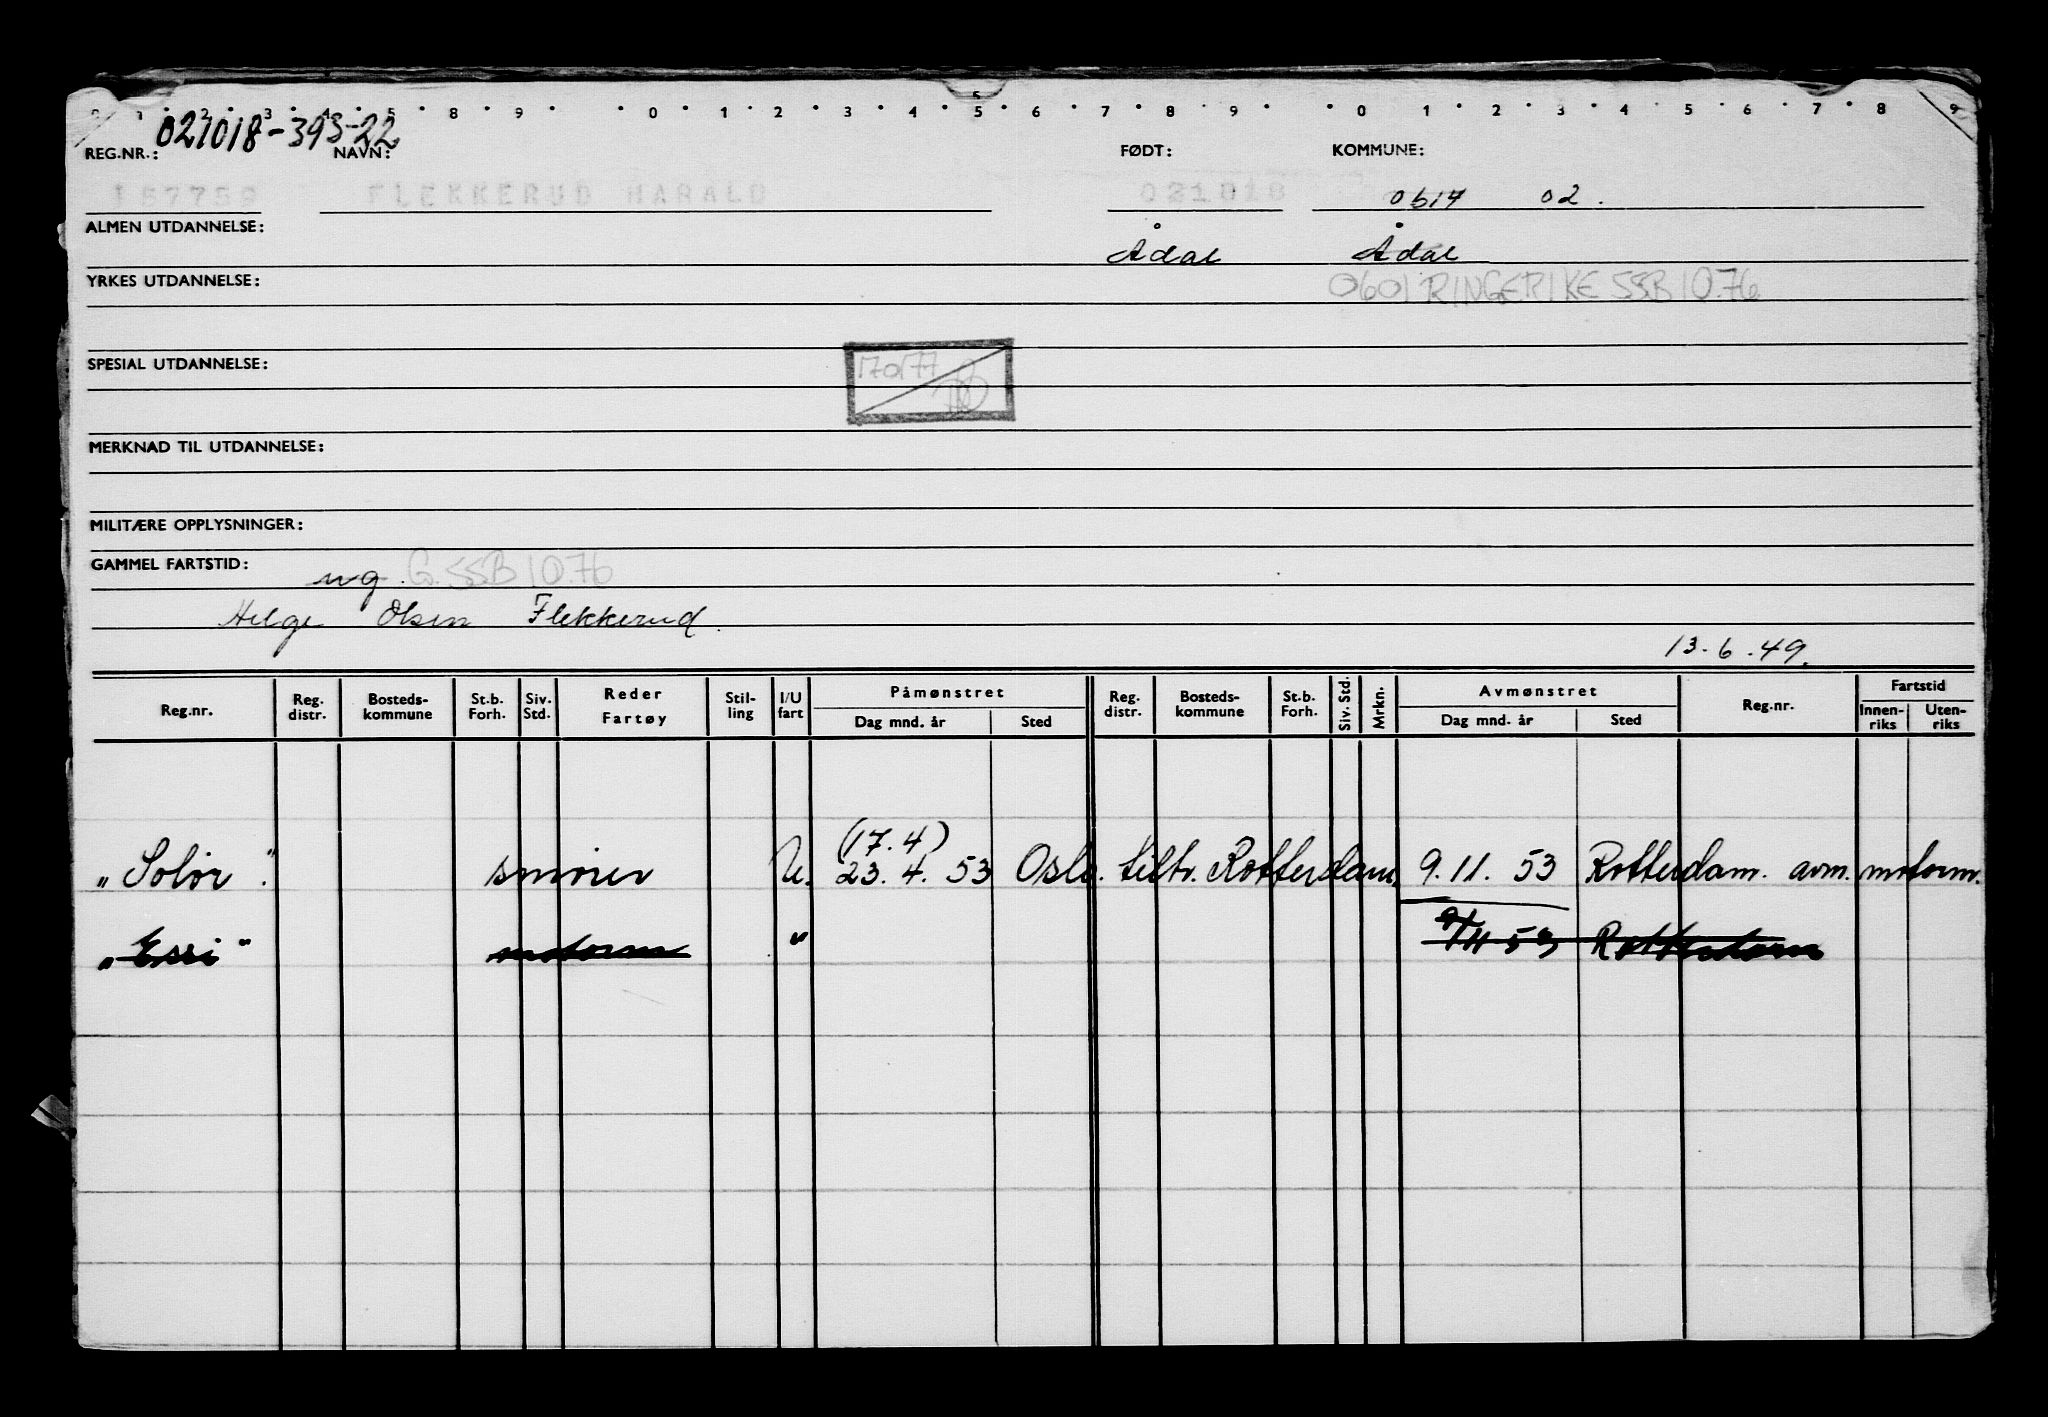 0 1 2 3 4 5 8 9 0 1 2 3 4 5 6 7 8 9 0 1 2 3 4 5 6 7 8 9
021018-393-22
REG.NR.: NAVN: FØDT: KOMMUNE:
157759 FLEKKERUD HARALD 021018 0617 02.
ALMEN UTDANNELSE: Ådal Ådal
YRKES UTDANNELSE: 0601 RINGERIKE SSB 10.76
SPESIAL UTDANNELSE: 170177
MERKNAD TIL UTDANNELSE:
MILITÆRE OPPLYSNINGER:
GAMMEL FARTSTID: ug. G. SSB 10.76
Helge Olsen Flekkerud.
13.6.49.
Reg.nr. Reg. distr. Bosteds-kommune St.b. Forh. Siv. Std. Reder Fartøy Stil-ling I/U fart Påmønstret Dag mnd. år Sted Reg. distr. Bosteds-kommune St.b. Forh. Siv. Std. Mrkn. Avmønstret Dag mnd. år Sted Reg.nr. Fartstid Innen-riks Uten-riks
(17.4)
"Solør". smører U. 23.4.53 Oslo. tiltr. Rotterdam. 9.11.53 Rotterdam. avm. motorm.
"Essi" motorm " 9/11 53 Rotterdam